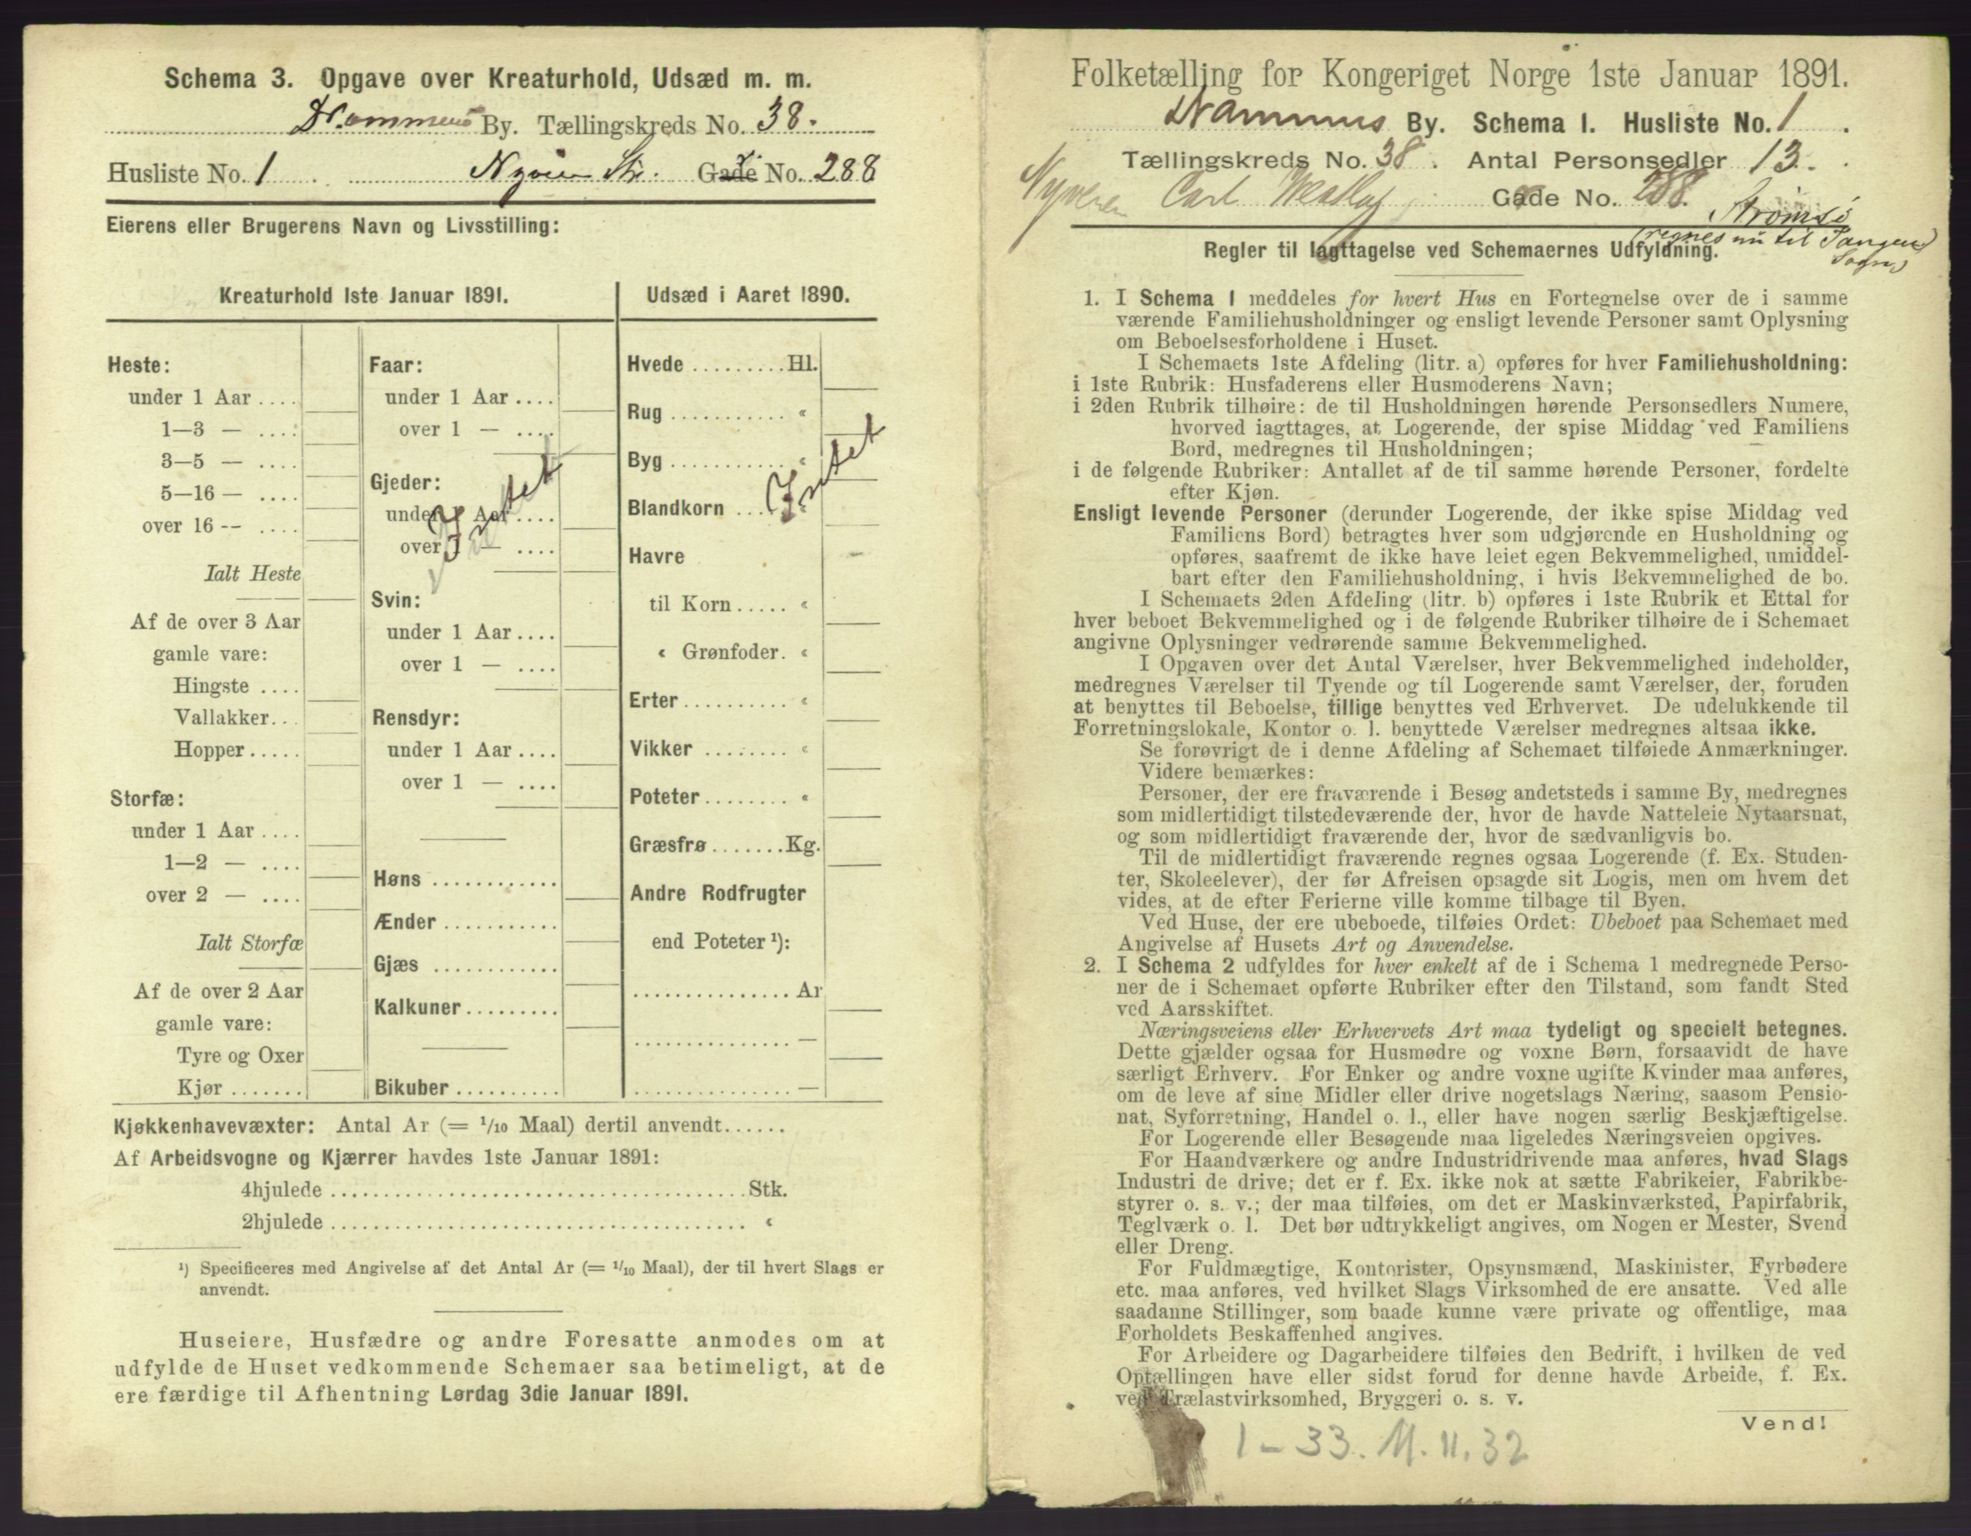 Schema 3. Opgave over Kreaturhold, Udsæd m. m.
Drammens By. Tællingskreds No. 38.
Husliste No. 1 Nyveien Str. Gade No. 288
Eierens eller Brugerens Navn og Livsstilling:
Kreaturhold 1ste Januar 1891.
Heste:
under 1 Aar ....
1—3 — ....
3—5 — ....
5—16 — ....
over 16 -- ....
Ialt Heste
Af de over 3 Aar
gamle vare:
Hingste ....
Vallakker...
Hopper.....
Storfæ:
under 1 Aar ....
1—2 — ....
over 2 — ....
Ialt Storfæ
Af de over 2 Aar
gamle vare:
Tyre og Oxer
Kjør .......
Faar:
under 1 Aar ....
over 1 — ....
Gjeder:
under 1 Aar ....
over 1 — ....
Intet
Svin:
under 1 Aar ....
over 1 — ....
Rensdyr:
under 1 Aar ....
over 1 — ....
Høns ............
Ænder ...........
Gjæs ............
Kalkuner.........
Bikuber ..........
Udsæd i Aaret 1890.
Hvede .........Hl.
Rug ........... «
Byg ........... «
Blandkorn ..... «
Intet
Havre
til Korn ..... «
« Grønfoder. «
Erter .......... «
Vikker ........ «
Poteter ........ «
Græsfrø .......Kg.
Andre Rodfrugter
end Poteter ¹):
............... Ar
............... —
............... —
Kjøkkenhavevæxter: Antal Ar (= 1/10 Maal) dertil anvendt......
Af Arbeidsvogne og Kjærrer havdes 1ste Januar 1891:
4hjulede ........................................Stk.
2hjulede ........................................ «
¹) Specificeres med Angivelse af det Antal Ar (= 1/10 Maal), der til hvert Slags er
anvendt.
Huseiere, Husfædre og andre Foresatte anmodes om at
udfylde de Huset vedkommende Schemaer saa betimeligt, at de
ere færdige til Afhentning Lørdag 3die Januar 1891.
Folketælling for Kongeriget Norge 1ste Januar 1891.
Drammens By. Schema 1. Husliste No. 1.
Tællingskreds No. 38. Antal Personsedler 13.
Nyveien Carl Gade No. 288.
Strømsø
(regnes nu til Tangen
Sogn)
Regler til Iagttagelse ved Schemaernes Udfyldning.
1. I Schema 1 meddeles for hvert Hus en Fortegnelse over de i samme
værende Familiehusholdninger og ensligt levende Personer samt Oplysning
om Beboelsesforholdene i Huset.
I Schemaets 1ste Afdeling (litr. a) opføres for hver Familiehusholdning:
i 1ste Rubrik: Husfaderens eller Husmoderens Navn;
i 2den Rubrik tilhøire: de til Husholdningen hørende Personsedlers Numere,
hvorved iagttages, at Logerende, der spise Middag ved Familiens
Bord, medregnes til Husholdningen;
i de følgende Rubriker: Antallet af de til samme hørende Personer, fordelte
efter Kjøn.
Ensligt levende Personer (derunder Logerende, der ikke spise Middag ved
Familiens Bord) betragtes hver som udgjørende en Husholdning og
opføres, saafremt de ikke have leiet egen Bekvemmelighed, umiddel-
bart efter den Familiehusholdning, i hvis Bekvemmelighed de bo.
I Schemaets 2den Afdeling (litr. b) opføres i 1ste Rubrik et Ettal for
hver beboet Bekvemmelighed og i de følgende Rubriker tilhøire de i Schemaet
angivne Oplysninger vedrørende samme Bekvemmelighed.
I Opgaven over det Antal Værelser, hver Bekvemmelighed indeholder,
medregnes Værelser til Tyende og til Logerende samt Værelser, der, foruden
at benyttes til Beboelse, tillige benyttes ved Erhvervet. De udelukkende til
Forretningslokale, Kontor o. l. benyttede Værelser medregnes altsaa ikke.
Se forøvrigt de i denne Afdeling af Schemaet tilføiede Anmærkninger.
Videre bemærkes:
Personer, der ere fraværende i Besøg andetsteds i samme By, medregnes
som midlertidigt tilstedeværende der, hvor de havde Natteleie Nytaarsnat,
og som midlertidigt fraværende der, hvor de sædvanligvis bo.
Til de midlertidigt fraværende regnes ogsaa Logerende (f. Ex. Studen-
ter, Skoleelever), der før Afreisen opsagde sit Logis, men om hvem det
vides, at de efter Ferierne ville komme tilbage til Byen.
Ved Huse, der ere ubeboede, tilføies Ordet: Ubeboet paa Schemaet med
Angivelse af Husets Art og Anvendelse.
2. I Schema 2 udfyldes for hver enkelt af de i Schema 1 medregnede Perso-
ner de i Schemaet opførte Rubriker efter den Tilstand, som fandt Sted
ved Aarsskiftet.
Næringsveiens eller Erhvervets Art maa tydeligt og specielt betegnes.
Dette gjælder ogsaa for Husmødre og voxne Børn, forsaavidt de have
særligt Erhverv. For Enker og andre voxne ugifte Kvinder maa anføres,
om de leve af sine Midler eller drive nogetslags Næring, saasom Pensio-
nat, Syforretning, Handel o. l., eller have nogen særlig Beskjæftigelse.
For Logerende eller Besøgende maa ligeledes Næringsveien opgives.
For Haandværkere og andre Industridrivende maa anføres, hvad Slags
Industri de drive; det er f. Ex. ikke nok at sætte Fabrikeier, Fabrikbe-
styrer o. s. v.; der maa tilføies, om det er Maskinværksted, Papirfabrik,
Teglværk o. l. Det bør udtrykkeligt angives, om Nogen er Mester, Svend
eller Dreng.
For Fuldmægtige, Kontorister, Opsynsmænd, Maskinister, Fyrbødere
etc. maa anføres, ved hvilket Slags Virksomhed de ere ansatte. Ved alle
saadanne Stillinger, som baade kunne være private og offentlige, maa
Forholdets Beskaffenhed angives.
For Arbeidere og Dagarbeidere tilføies den Bedrift, i hvilken de ved
Optællingen have eller sidst forud for denne havde Arbeide, f. Ex.
ved Trælastvirksomhed, Bryggeri o. s. v.
Vend!
1–33. M. 11. 32